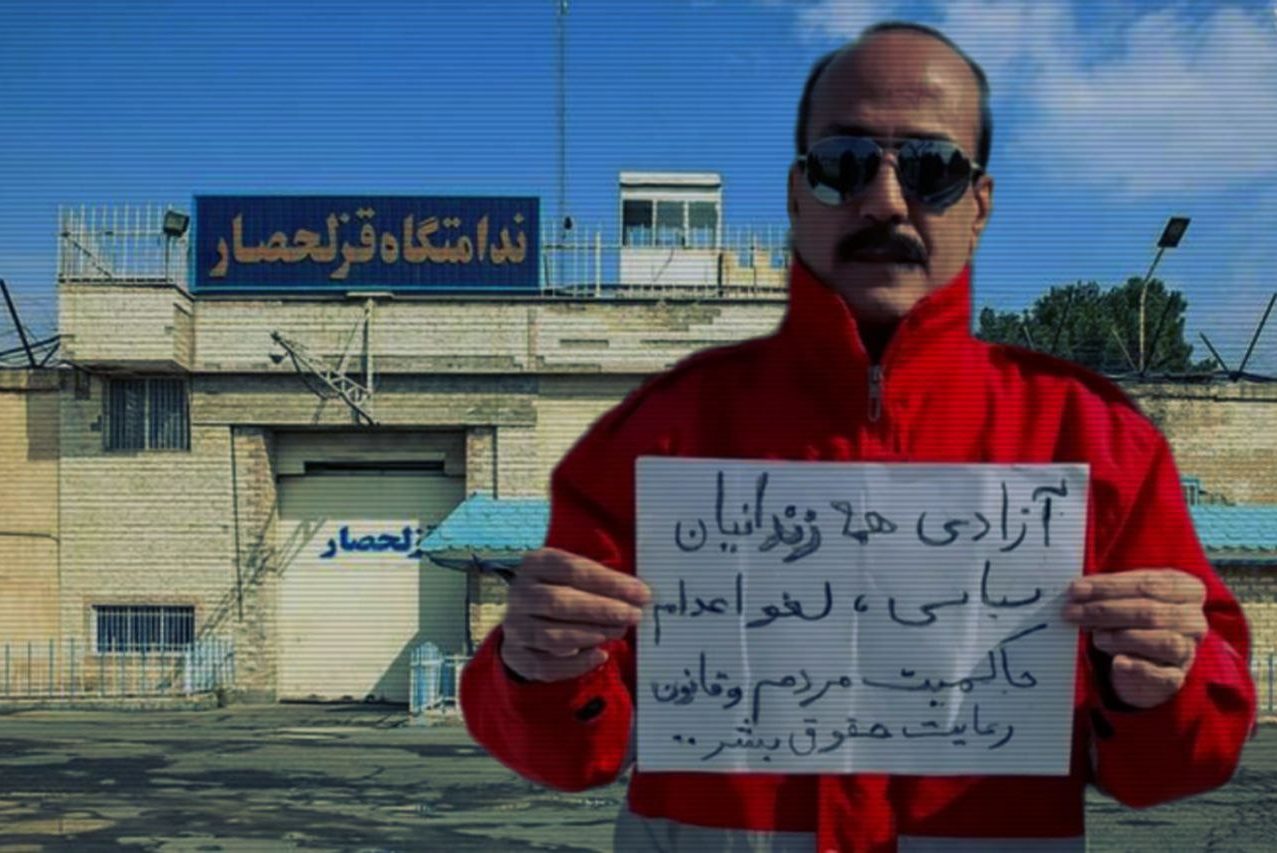 ندامتگاه قزلحصار
قزلحصار
آزادی همه زندانیان
سیاسی ، لغو اعدام
حاکمیت مردم و قانون
رعایت حقوق بشر ..